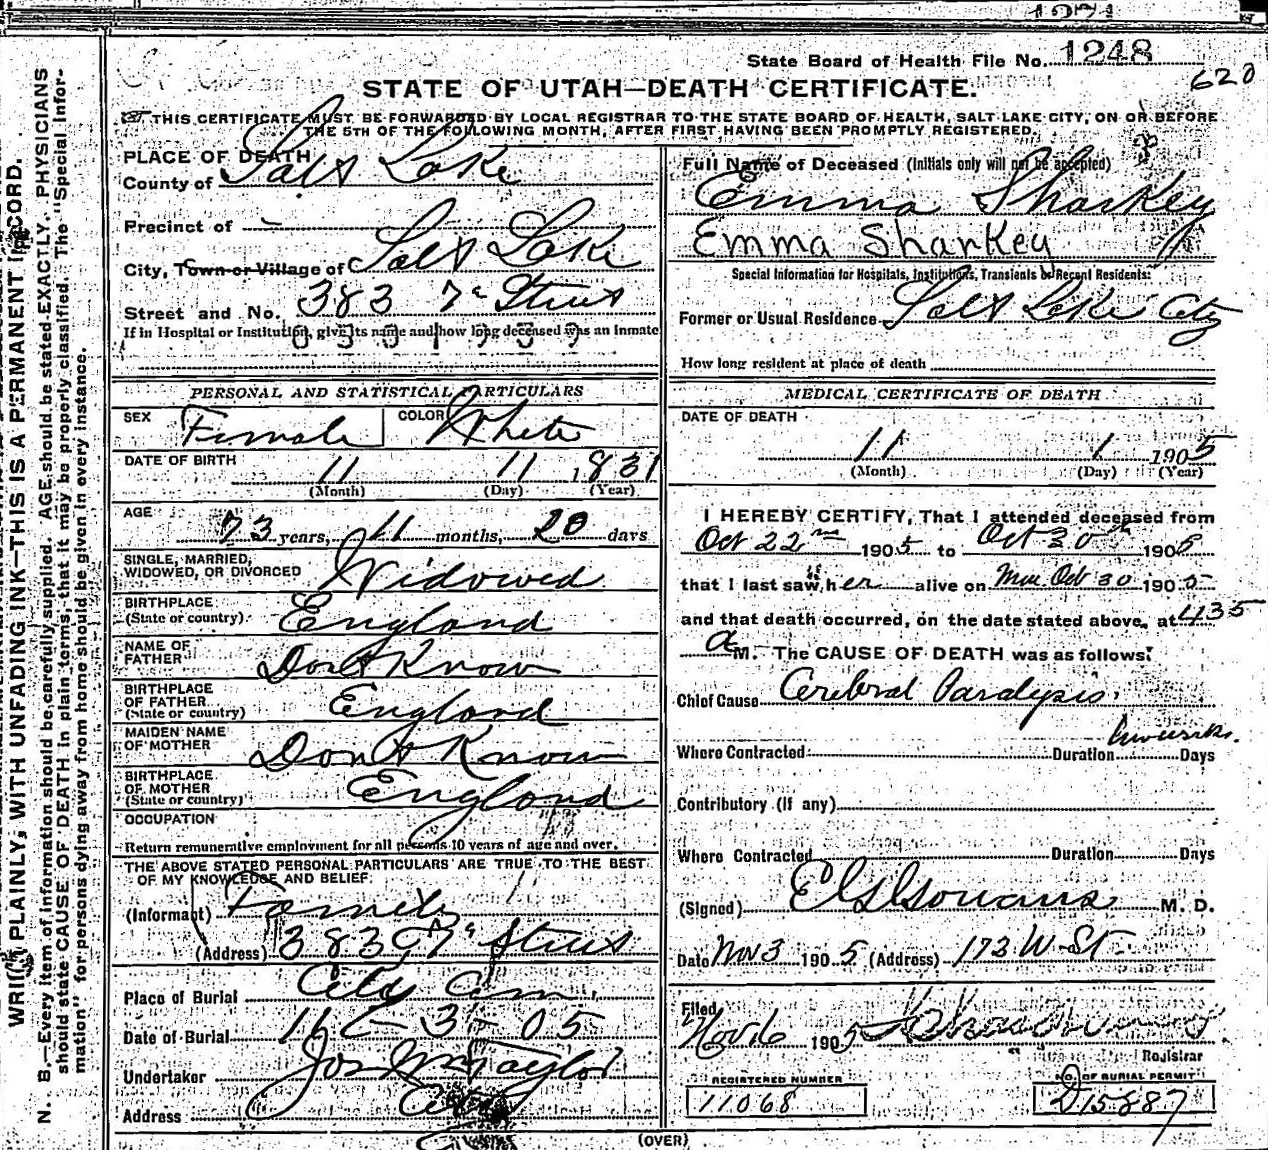 State Board of Health File No. 1248
620
STATE OF UTAH—DEATH CERTIFICATE.
THIS CERTIFICATE MUST BE FORWARDED BY LOCAL REGISTRAR TO THE STATE BOARD OF HEALTH, SALT LAKE CITY, ON OR BEFORE
THE 5TH OF THE FOLLOWING MONTH, AFTER FIRST HAVING BEEN PROMPTLY REGISTERED.
N. B.—Every item of information should be carefully supplied. AGE should be stated EXACTLY. PHYSICIANS
should state CAUSE OF DEATH in plain terms, that it may be properly classified. The "Special Infor-
mation" for persons dying away from home should be given in every instance.
PLAINLY, WITH UNFADING INK—THIS IS A PERMANENT RECORD.
PLACE OF DEATH
County of Salt Lake
Precinct of —
City, Town or Village of Salt Lake
Street and No. 383 7th Street
If in Hospital or Institution, give its name and how long deceased was an inmate
PERSONAL AND STATISTICAL PARTICULARS
SEX Female COLOR White
DATE OF BIRTH
11 11 1831
(Month) (Day) (Year)
AGE
73 years, 11 months, 20 days
SINGLE, MARRIED,
WIDOWED, OR DIVORCED Widowed
BIRTHPLACE
(State or country) England
NAME OF
FATHER Dont Know
BIRTHPLACE
OF FATHER
(State or country) England
MAIDEN NAME
OF MOTHER Dont Know
BIRTHPLACE
OF MOTHER
(State or country) England
OCCUPATION
Return remunerative employment for all persons 10 years of age and over.
THE ABOVE STATED PERSONAL PARTICULARS ARE TRUE TO THE BEST
OF MY KNOWLEDGE AND BELIEF.
(Informant) Family
(Address) 383 7th Street
Place of Burial City Cem.
Date of Burial 11 - 3 - 05
Undertaker Jos Wm Taylor
Address City
Full Name of Deceased (Initials only will not be accepted)
Emma Sharkey
Emma Sharkey
Special Information for Hospitals, Institutions, Transients or Recent Residents:
Former or Usual Residence Salt Lake City
How long resident at place of death
MEDICAL CERTIFICATE OF DEATH
DATE OF DEATH
11 1 1905
(Month) (Day) (Year)
I HEREBY CERTIFY, That I attended deceased from
Oct 22nd 1905 to Oct 30th 1905
that I last saw her alive on Oct 30 1905
and that death occurred, on the date stated above, at 4:35
a M. The CAUSE OF DEATH was as follows:
Chief Cause Cerebral Paralysis.
Where Contracted Duration Days
Contributory (If any)
Where Contracted Duration Days
(Signed) M. D.
Date Nov 3 1905 (Address) 173 W St.
Filed
Nov 6 1905
Registrar
REGISTERED NUMBER
11068
NO. OF BURIAL PERMIT
D15887
(OVER)